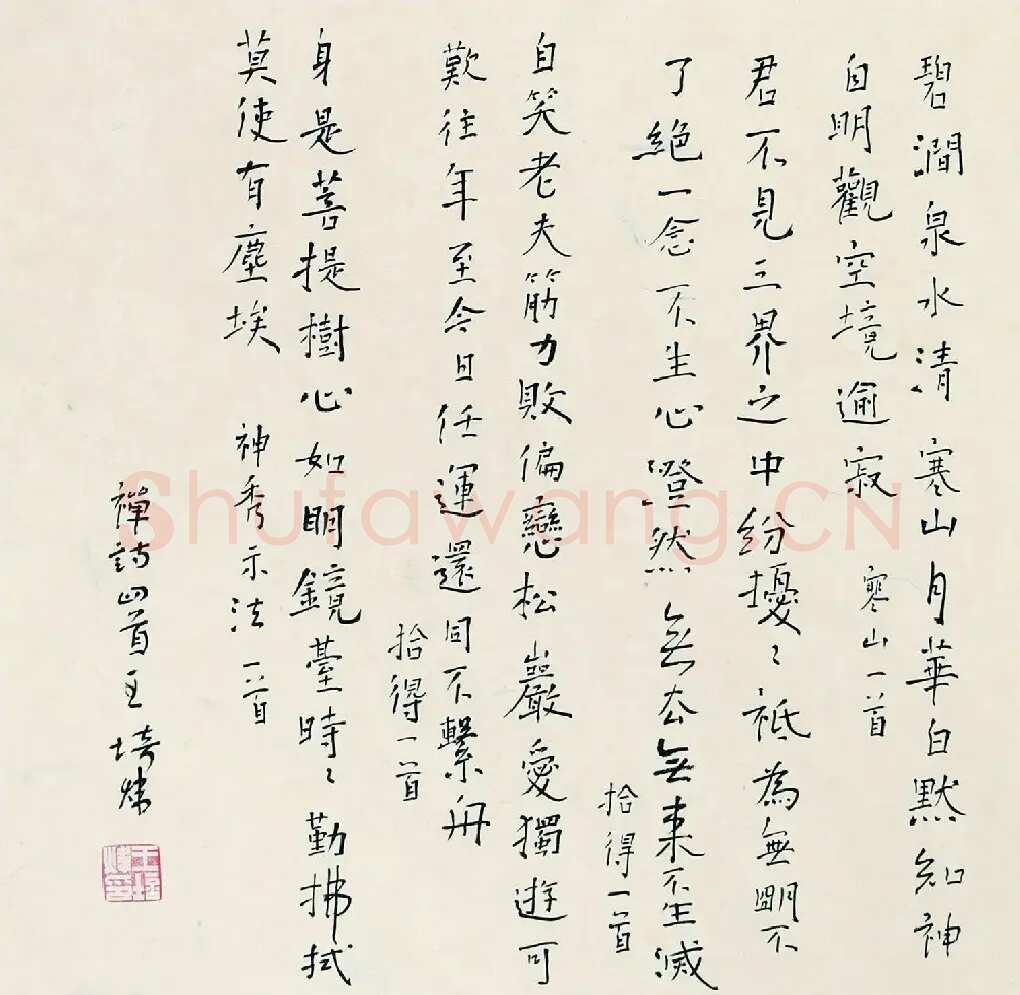 碧澗泉水清寒山月華白默知神
自明觀空境逾寂 寒山一首
君不見三界之中紛擾〻祗為無明不
了絕一念不生心澄然無去無來不生滅
拾得一首
自笑老夫筋力敗偏戀松巖愛獨遊可
歎往年至今日任運還同不繫舟
拾得一首
身是菩提樹心如明鏡臺時〻勤拂拭
莫使有塵埃 神秀示法一首
禪詩四首王
Shufawang.CN